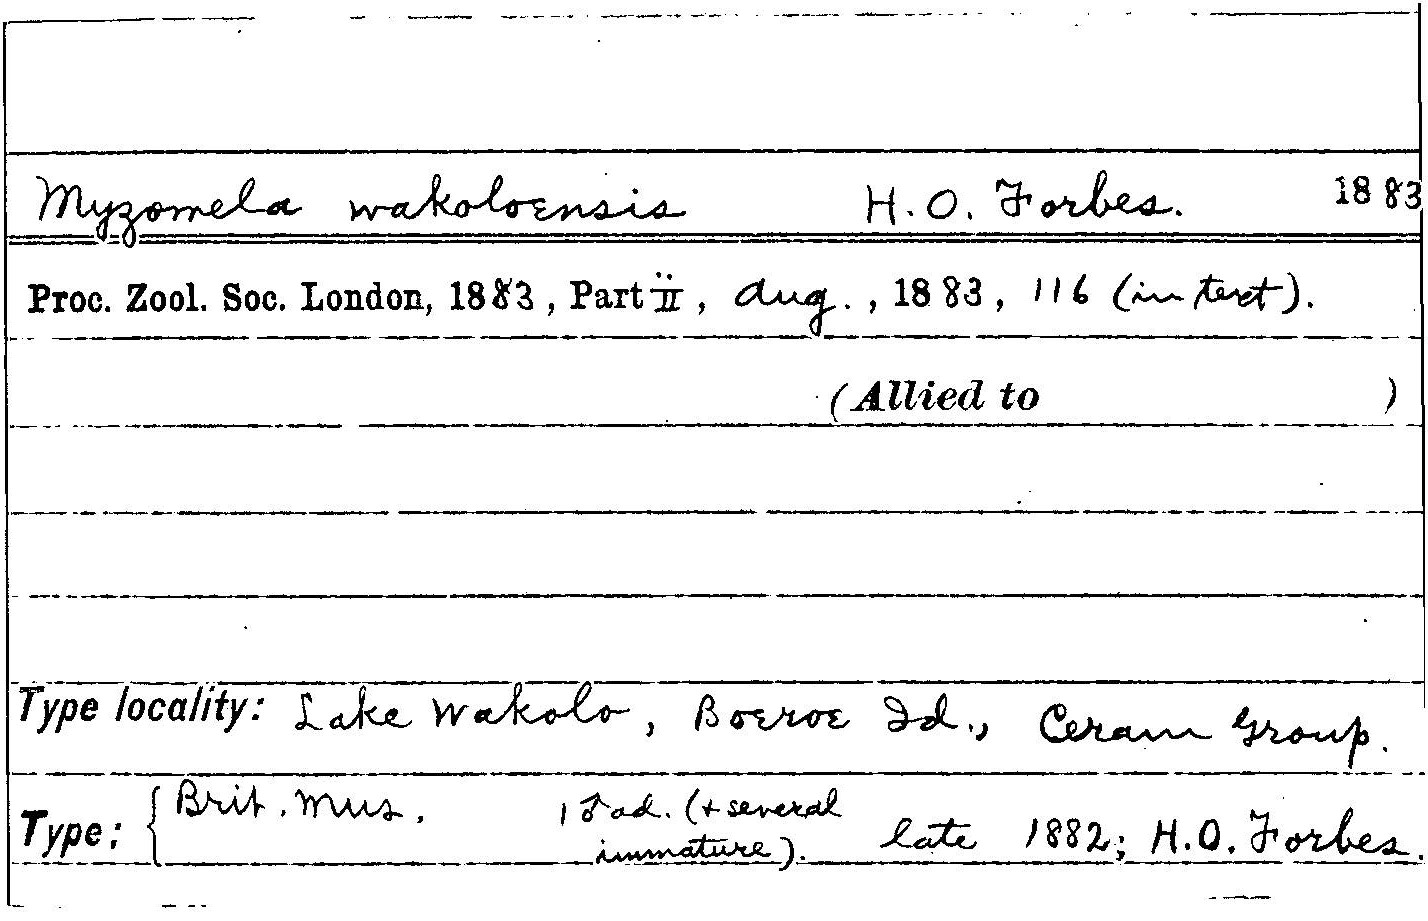 Myzomela wakoloensis H. O. Forbes. 1883
Proc. Zool. Soc. London, 1883, Part ii, Aug., 1883, 116 (in text).
(Allied to )
Type locality: Lake Wakolo, Boeroe Id., Ceram Group.
Type: { Brit. Mus. 1 ♂ ad. (+ several immature). late 1882; H.O. Forbes.